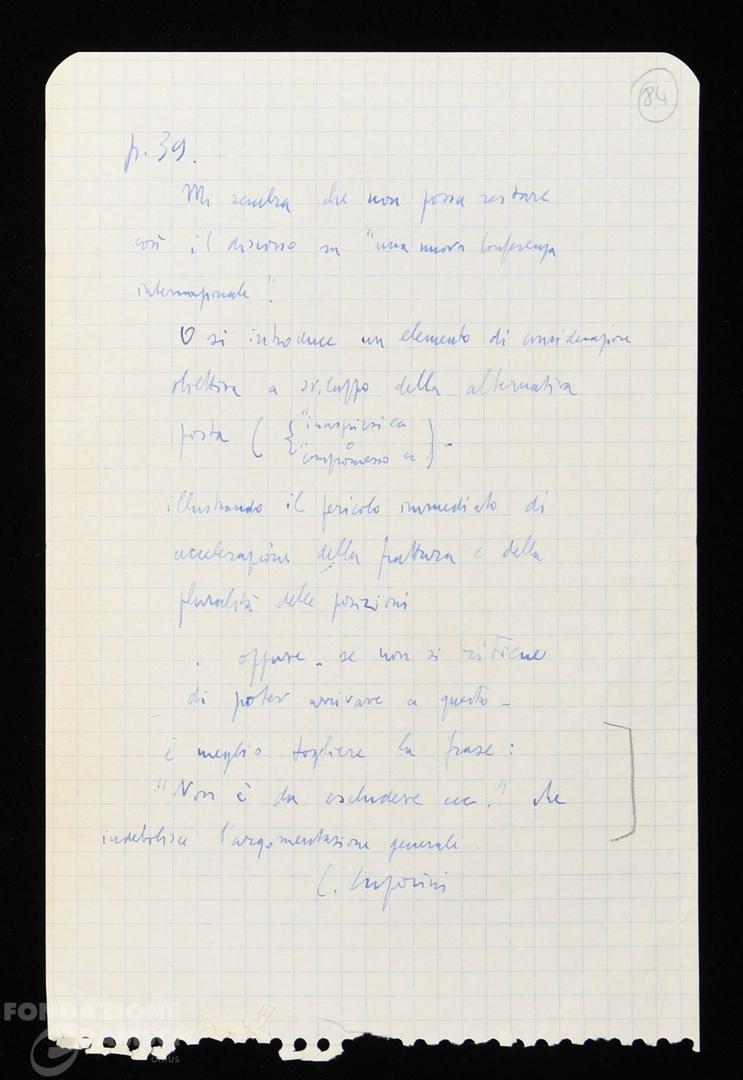 84
p. 39.
Mi sembra che non possa restare
così il discorso su "una nuova conferenza
internazionale".
O si introduce un elemento di considerazione
obiettiva a sviluppo della alternativa
posta ( { "inasprirsi ecc
o
"compromesso ecc ) -
illustrando il pericolo immediato di
accelerazione della frattura e della
pluralità delle posizioni
oppure - se non si ritiene
di poter arrivare a questo -
è meglio togliere la frase:
"Non è da escludere ecc." che
indebolisce l'argomentazione generale.
C. Luporini
FONDAZIONE
ONLUS